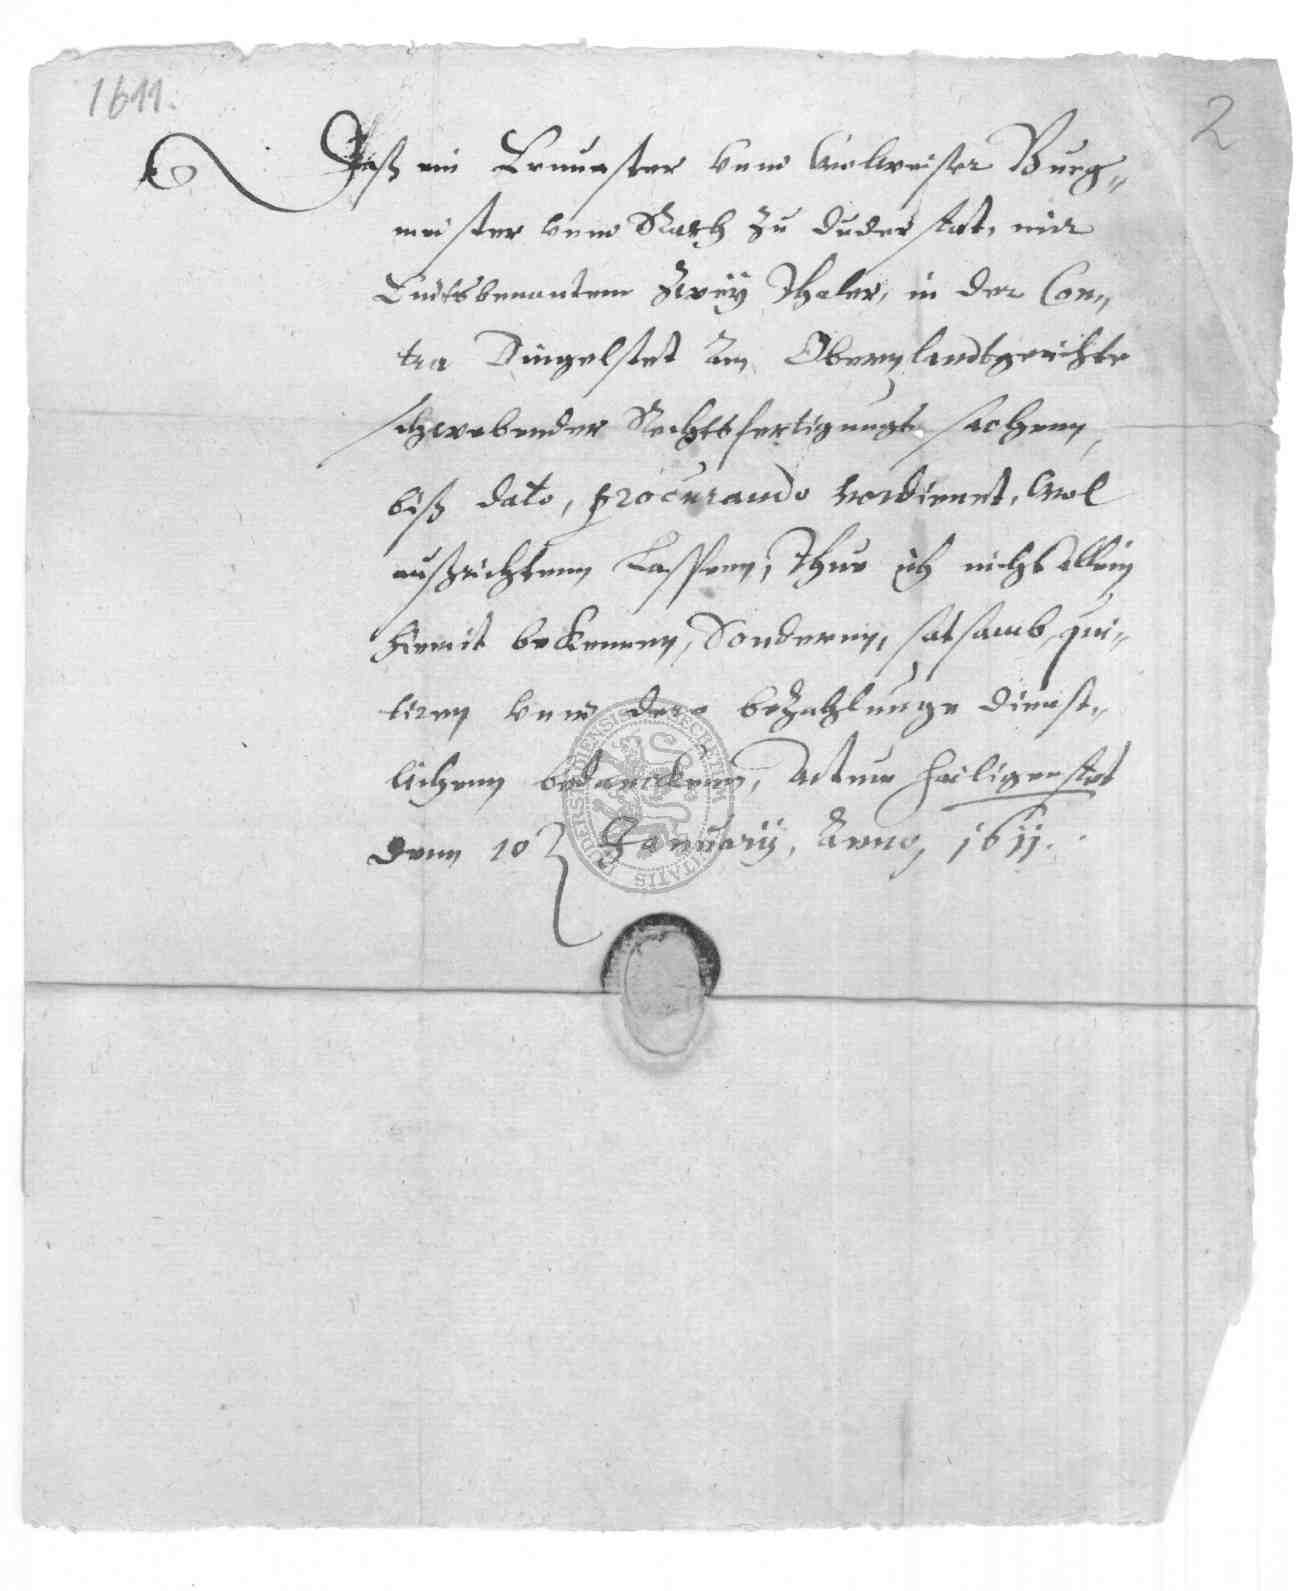 1611.
2
Daß ein Ernuester vnnd Wolweiser Burg„
meister vnnd Rath zu duderstat, mir
Endtsbenantem Zweÿ Thaler, in der Con„
tra Dingelstet am Obernlandtgerichte
schwebender Rechtsfertigungs sachenn,
biß dato, procurando verdienet, Wol
außrichtenn Lassenn, Thue ich nicht allein
hiemit bekennen, Sondernn, satsamb qui„
tiren vnnd der bezahlunge dienst„
lichenn bedanckenn, Actum Heiligenstat
denn 10 Januarÿ, Anno, 1611.